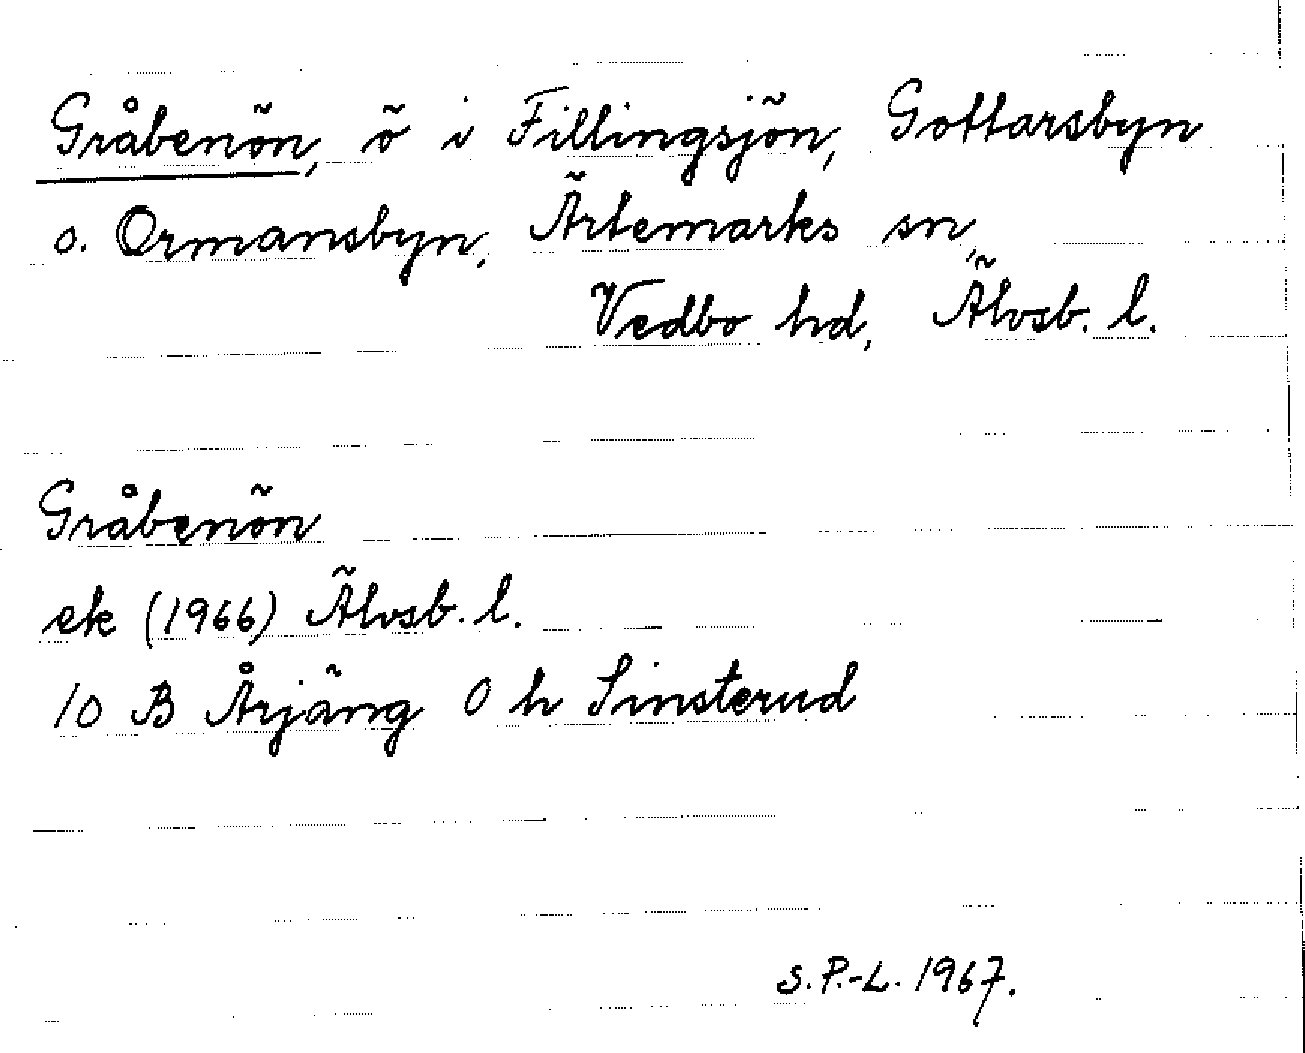 Gråbenön, ö i Fillingsjön, Gottarsbyn
o. Ormansbyn, Ärtemarks sn,
Vedbo hd, Älvsb. l.
Gråbenön
ek (1966) Älvsb. l.
10 B Årjäng 0 h Sinsterud
S. P.-L. 1967.